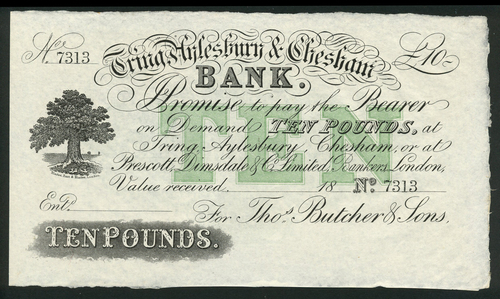 No. 7313 Tring, Aylesbury & Chesham £10-
BANK.
I Promise to pay the Bearer
on Demand TEN POUNDS, at
Tring, Aylesbury, Chesham, or at
Prescott, Dimsdale & Co. Limited, Bankers London,
Value received. 18 No. 7313
TEN
Entd. For Thos. Butcher & Sons,
TEN POUNDS.